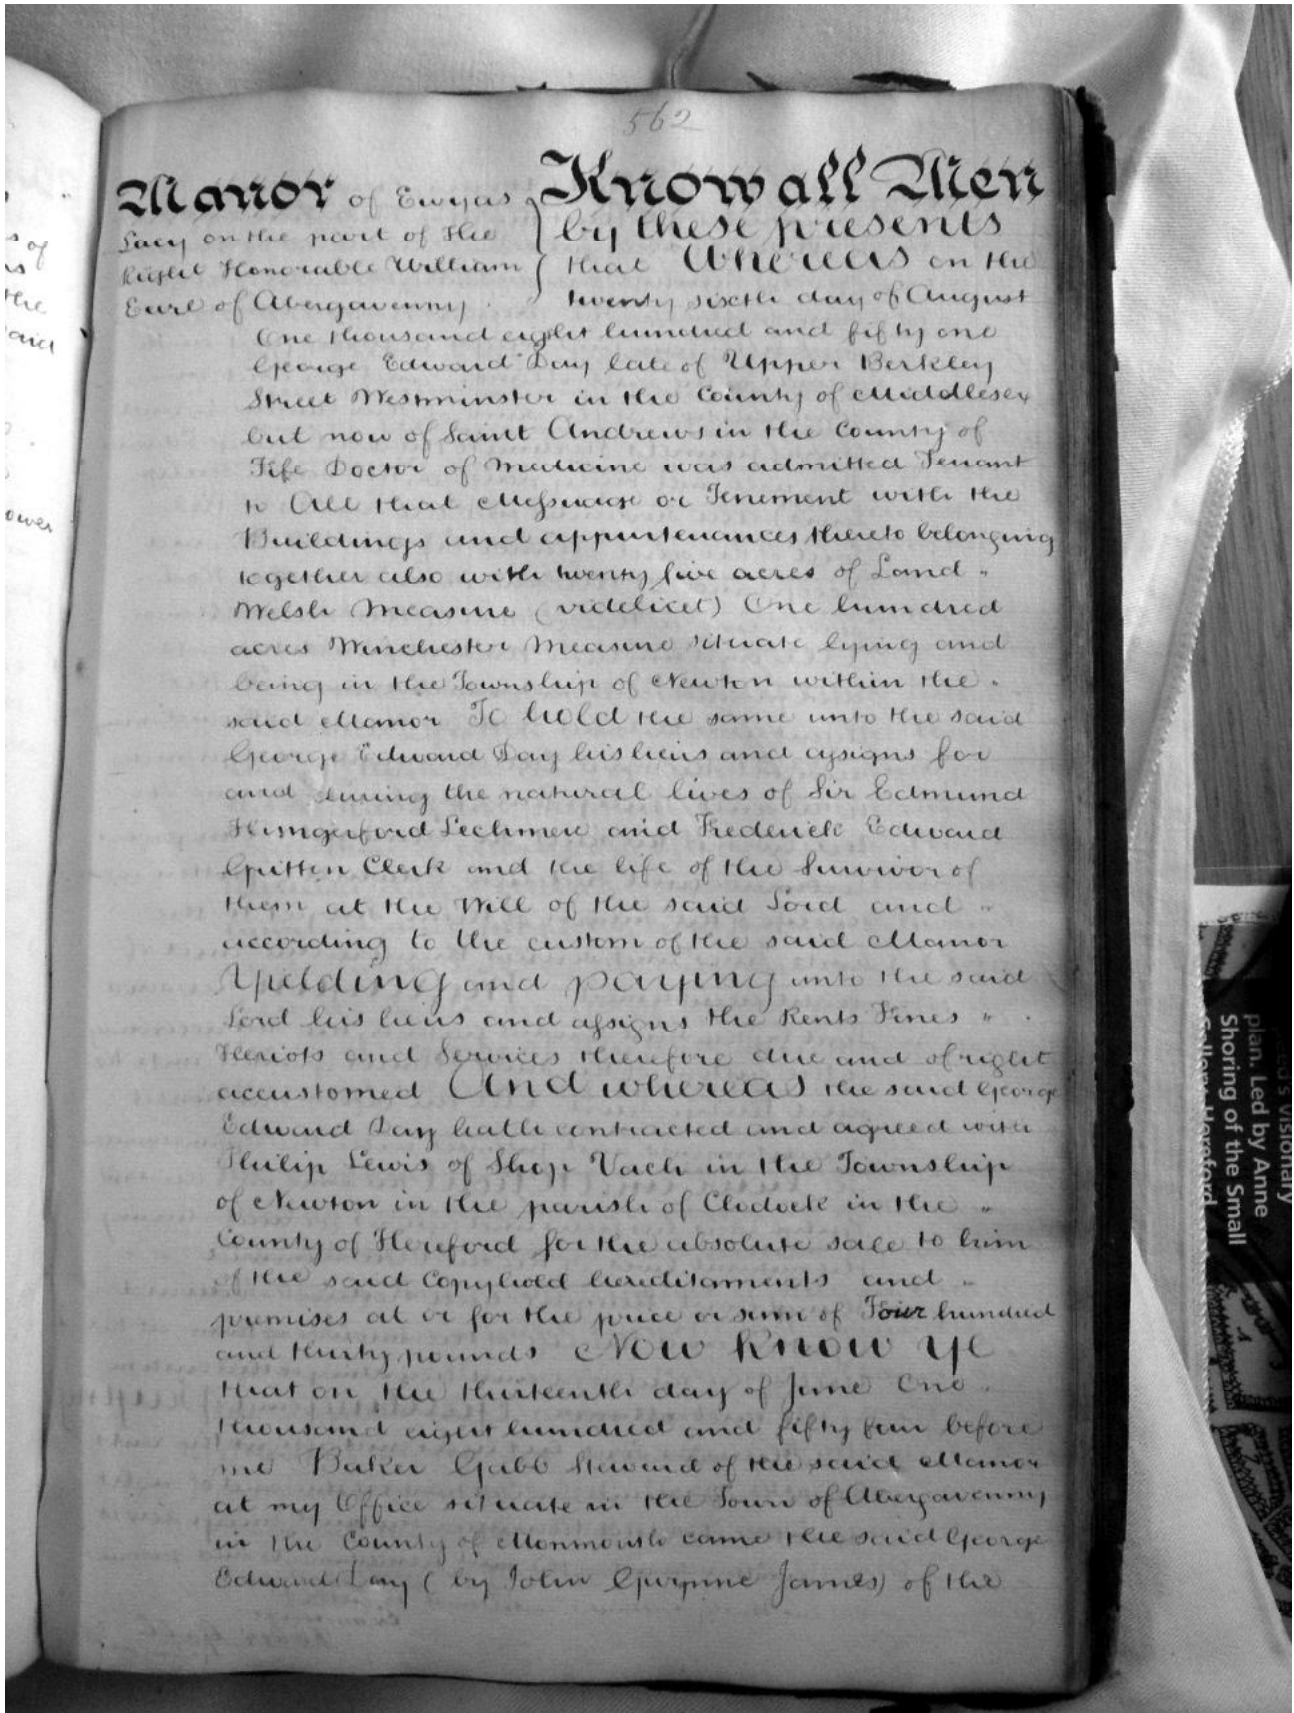 562
Manor of Ewyas
Lacy on the part of the
Right Honorable William
Earl of Abergavenny
Know all Men
by these presents
that Whereas on the
twenty sixth day of August
One thousand eight hundred and fifty one
George Edward Day late of Upper Berkley
Street Westminster in the County of Middlesex
but now of Saint Andrews in the County of
Fife Doctor of Medicine was admitted Tenant
to All that Messuage or Tenement with the
Buildings and appurtenances thereto belonging
together also with twenty five acres of Land "
Welsh Measure (videlicet) One hundred
acres Winchester Measure situate lying and
being in the Township of Newton within the "
said Manor To hold the same unto the said
George Edward Day his heirs and assigns for
and during the natural lives of Sir Edmund
Hungerford Lechmere and Frederick Edward
Gretten Clerk and the life of the Survivor of
them at the Will of the said Lord and "
according to the custom of the said Manor
Yielding and paying unto the said
Lord his heirs and assigns the Rents Fines "
Heriots and Services therefore due and of right
accustomed And whereas the said George
Edward Day hath contracted and agreed with
Philip Lewis of Shop Vach in the Township
of Newton in the parish of Clodock in the "
County of Hereford for the absolute sale to him
of the said Copyhold hereditaments and "
premises at or for the price or sum of Four hundred
and thirty pounds Now Know Ye
that on the thirteenth day of June One
thousand eight hundred and fifty four before
me Baker Gabb Steward of the said Manor
at my Office situate in the Town of Abergavenny
in the County of Monmouth came the said George
Edward Day (by John Gwynne James) of the
s of
the
said
ower
visionary
plan. Led by Anne
Shoring of the Small
Gallery Hereford